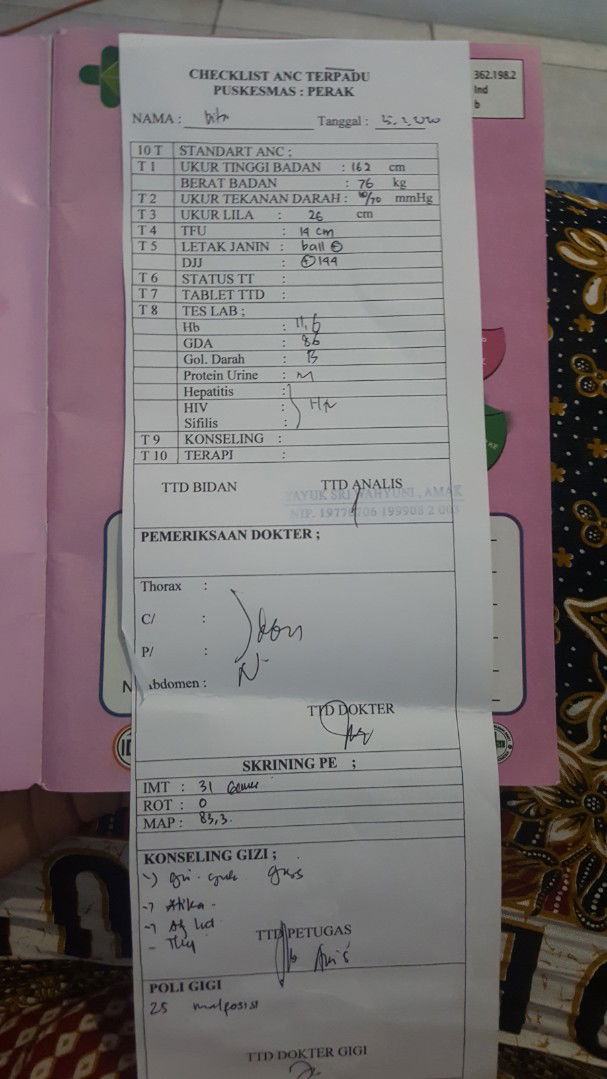 CHECKLIST ANC TERPADU
PUSKESMAS : PERAK
362.198.2
Ind
b
NAMA :
Tanggal :
10 T STANDART ANC ;
T 1 UKUR TINGGI BADAN : 162 cm
BERAT BADAN : 76 kg
T 2 UKUR TEKANAN DARAH : /70 mmHg
T 3 UKUR LILA : 26 cm
T 4 TFU : 19 cm
T 5 LETAK JANIN : ball
DJJ : 144
T 6 STATUS TT :
T 7 TABLET TTD :
T 8 TES LAB ;
Hb : 11,6
GDA : 86
Gol. Darah : B
Protein Urine :
Hepatitis :
HIV :
Sifilis :
T 9 KONSELING :
T 10 TERAPI :
TTD BIDAN TTD ANALIS
YAYUK SRI WAHYUNI, AMAK
PEMERIKSAAN DOKTER ;
Thorax :
C/ :
P/ :
bdomen : N
TTD DOKTER
SKRINING PE ;
IMT : 31
ROT : 0
MAP : 83,3
KONSELING GIZI ;
TTD PETUGAS
POLI GIGI
25 malposisi
TTD DOKTER GIGI